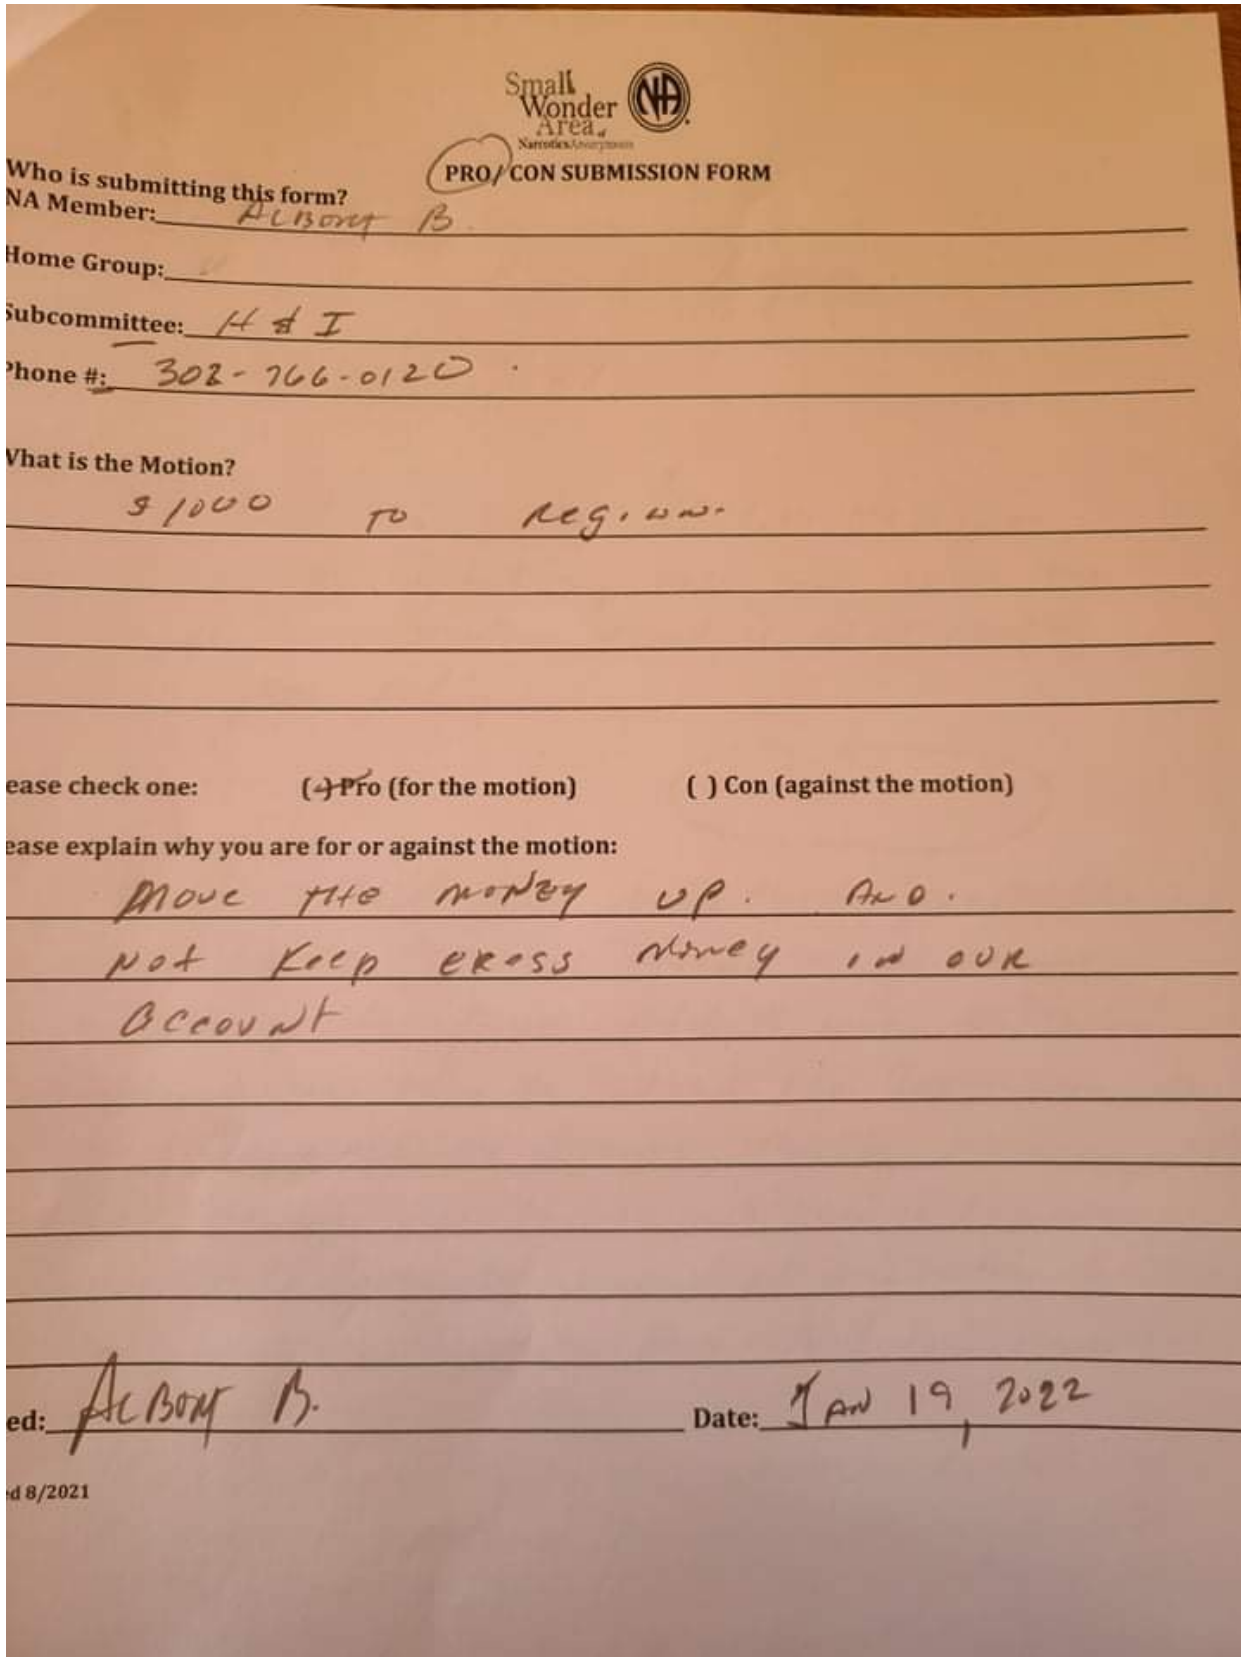 Small
Wonder
Area of
Narcotics Anonymous
PRO/ CON SUBMISSION FORM
Who is submitting this form?
NA Member: B.
Home Group:
Subcommittee: H & I
Phone #: 302-766-0120
What is the Motion?
$1000 TO Region.
ease check one: ( ) Pro (for the motion) ( ) Con (against the motion)
ease explain why you are for or against the motion:
Move the money up. AND.
Not Keep exess Money in our
account
ed: B. Date: JAN 19, 2022
ed 8/2021